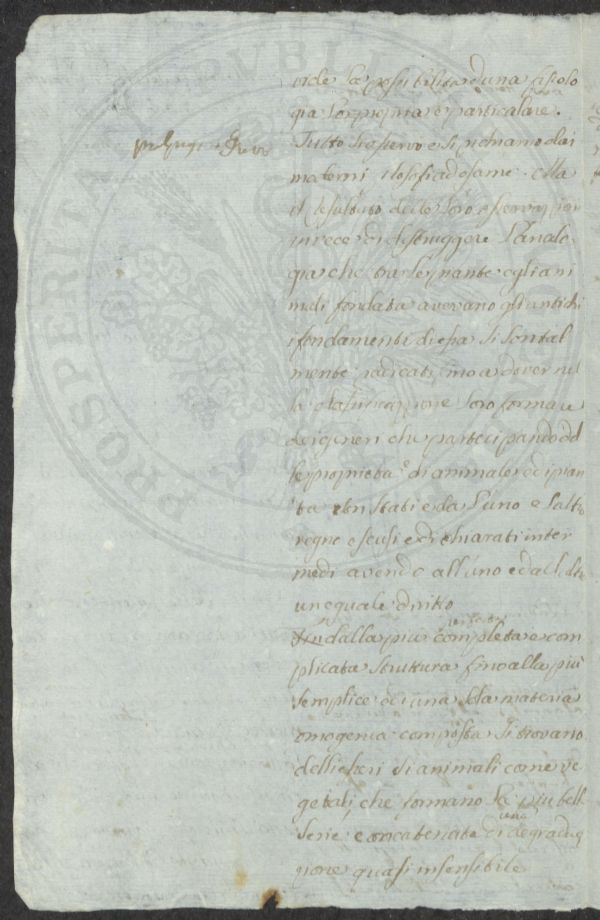 vide la possibilità d'una fisiolo
gia lor propria e particolare.
Tutto si osservò e si
moderni filosofi ad esame. Ma
il resultato delle loro osservazioni
invece di distruggere l'analo
gia che tra le piante e gli ani
mali fondata avevano gli antichi
i fondamenti di essa si son tal
mente radicati, fino a dover nel
la classificazione loro formare
dei generi che partecipando del
le proprietà di animale e di pian
ta son stati e da l'uno e l'altro
regno esclusi e dichiarati inter
medj avendo all'uno ed all'altro
un eguale dritto
dalla più completa e com
plicata struttura fino alla più
semplice di una sola materia
omogenia composta si trovano
delli esseri sì animali come ve
getali, che formano la più bella
serie concatenata di una degrada
zione quasi insensibile